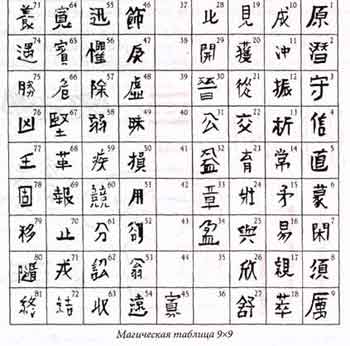 飾 46 見 19 成 10 原 1
遇 74 賓 65 懼 56 戾 47 38 開 29 獲 20 沖 11 潛 2
勝 75 危 66 除 57 虛 48 39 晉 30 從 21 振 12 守 3
凶 76 堅 67 弱 58 昧 49 40 公 31 交 22 祈 13 信 4
王 77 革 68 疾 59 損 50 41 益 32 育 23 常 14 直 5
固 78 報 69 競 60 用 51 42 章 33 壯 24 矛 15 蒙 6
移 79 止 70 分 61 卻 52 43 盈 34 與 25 易 16 閑 7
80 戎 71 訟 62 翁 53 44 35 欣 26 親 17 須 8
終 81 結 72 收 63 遠 54 寡 45 36 舒 27 萃 18 厲 9
Магическая таблица 9×9